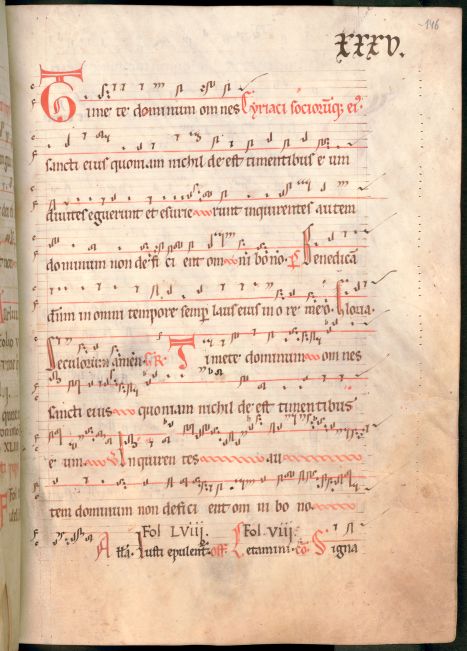 146
XXXV.
Timete dominum omnes Cyriaci socioruq; ei9.
sancti eius quoniam nichil de est timentibus e um
diuites eguerunt et esurie runt inquirentes autem
dominum non defi ci ent om ni bono. P Benedicā
dnm in omni tempore semp laus eius in o re meo. Gloria
Seculorum amen. GR. Timete dominum om nes
sancti eius quoniam nichil de est timentibus
e um V Inquiren tes au
tem dominum non defici ent om ni bo no
Fol LViij. Fol. viij.
Alla. Iusti epulent. off. Letamini. co. Signa